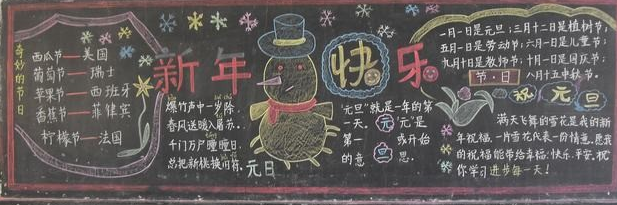 奇妙的节日
西瓜节——美国
葡萄节——瑞士
苹果节——西班牙
香蕉节——菲律宾
柠檬节——法国
新年快乐
爆竹声中一岁除,
春风送暖入屠苏。
千门万户曈曈日,
总把新桃换旧符。
元日
"元旦"就是一年的第
一天。"元"是
第一 或开始
的意 思。
旦
一月一日是元旦;三月十二日是植树节;
五月一日是劳动节;六月一日是儿童节;
九月十日是教师节;十月一日是国庆节;
节·日
八月十五中秋节。
祝元旦
满天飞舞的雪花是我的新
年祝福,一片雪花代表一份情意,愿我
的祝福能带给幸福!快乐,平安,祝
你学习进步每一天!